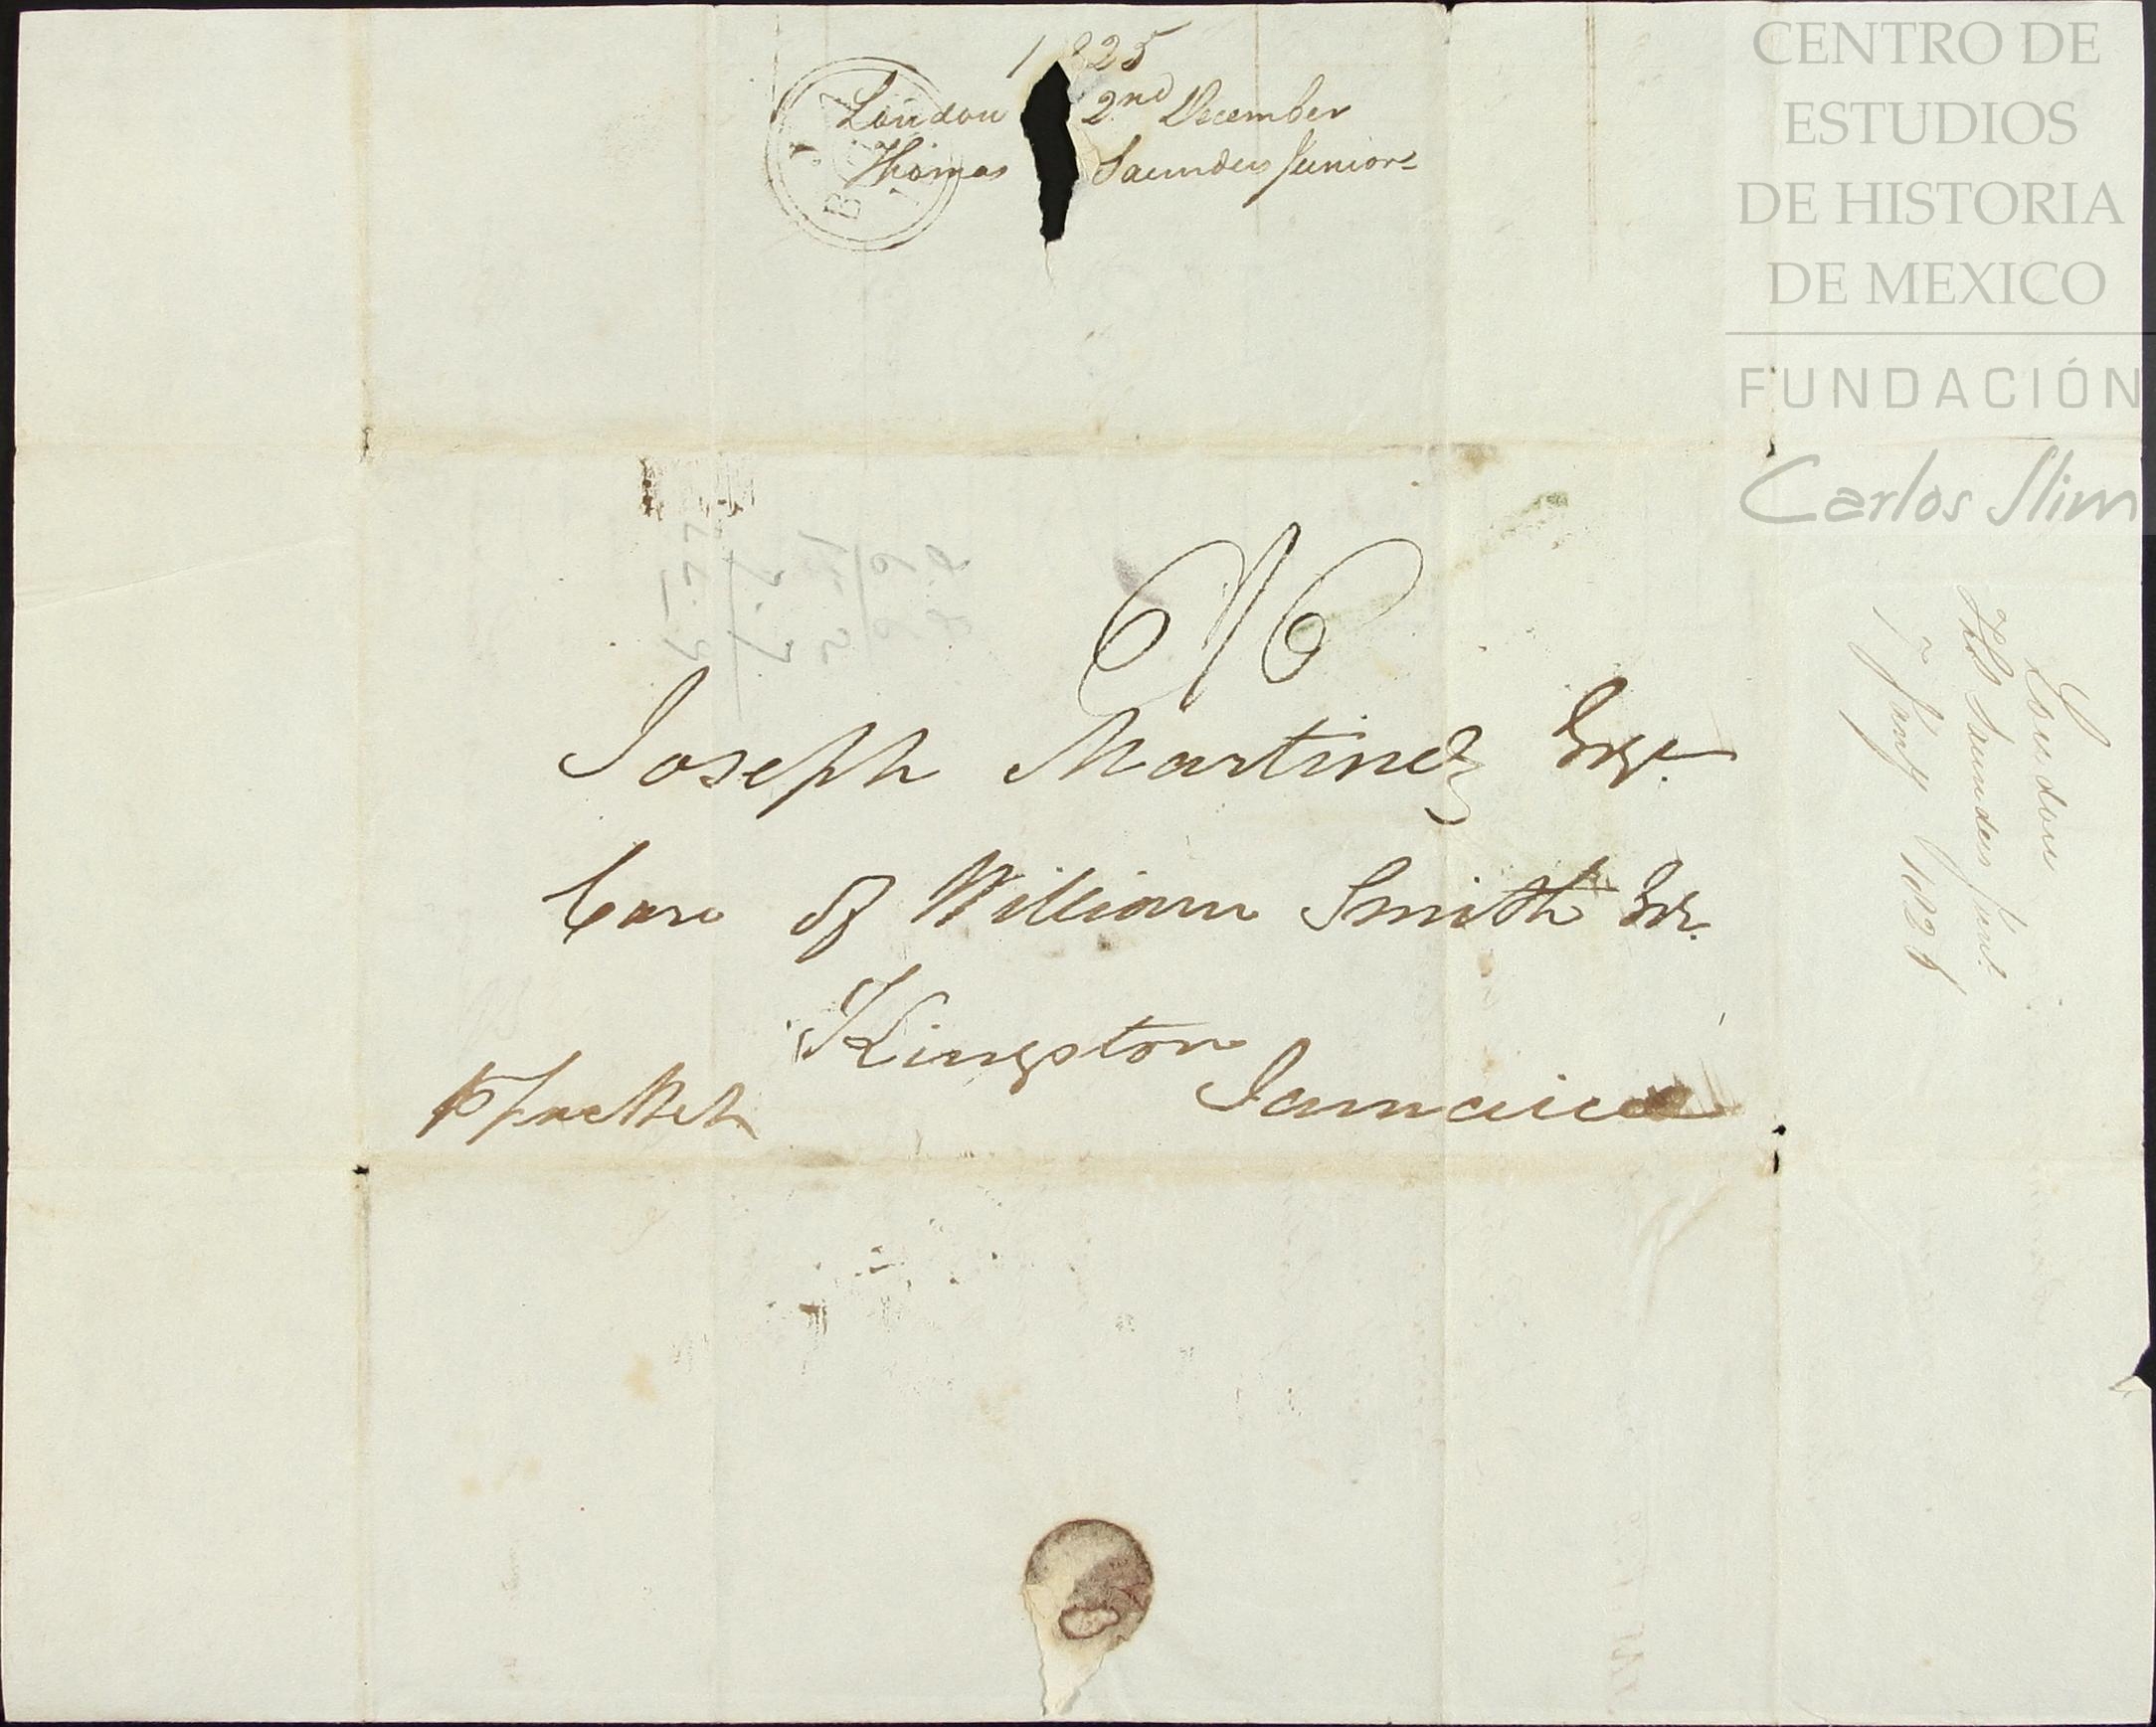 1825
London 2nd December
Thomas Saunders Junior
CENTRO DE
ESTUDIOS
DE HISTORIA
DE MEXICO
FUNDACIÓN
Carlos Slim
Joseph Martinez Esqr.
Care of William Smith Esr.
Kingston
Jamaica
p Packet
London
Thos Saunders Junr.
7 Jany 1826